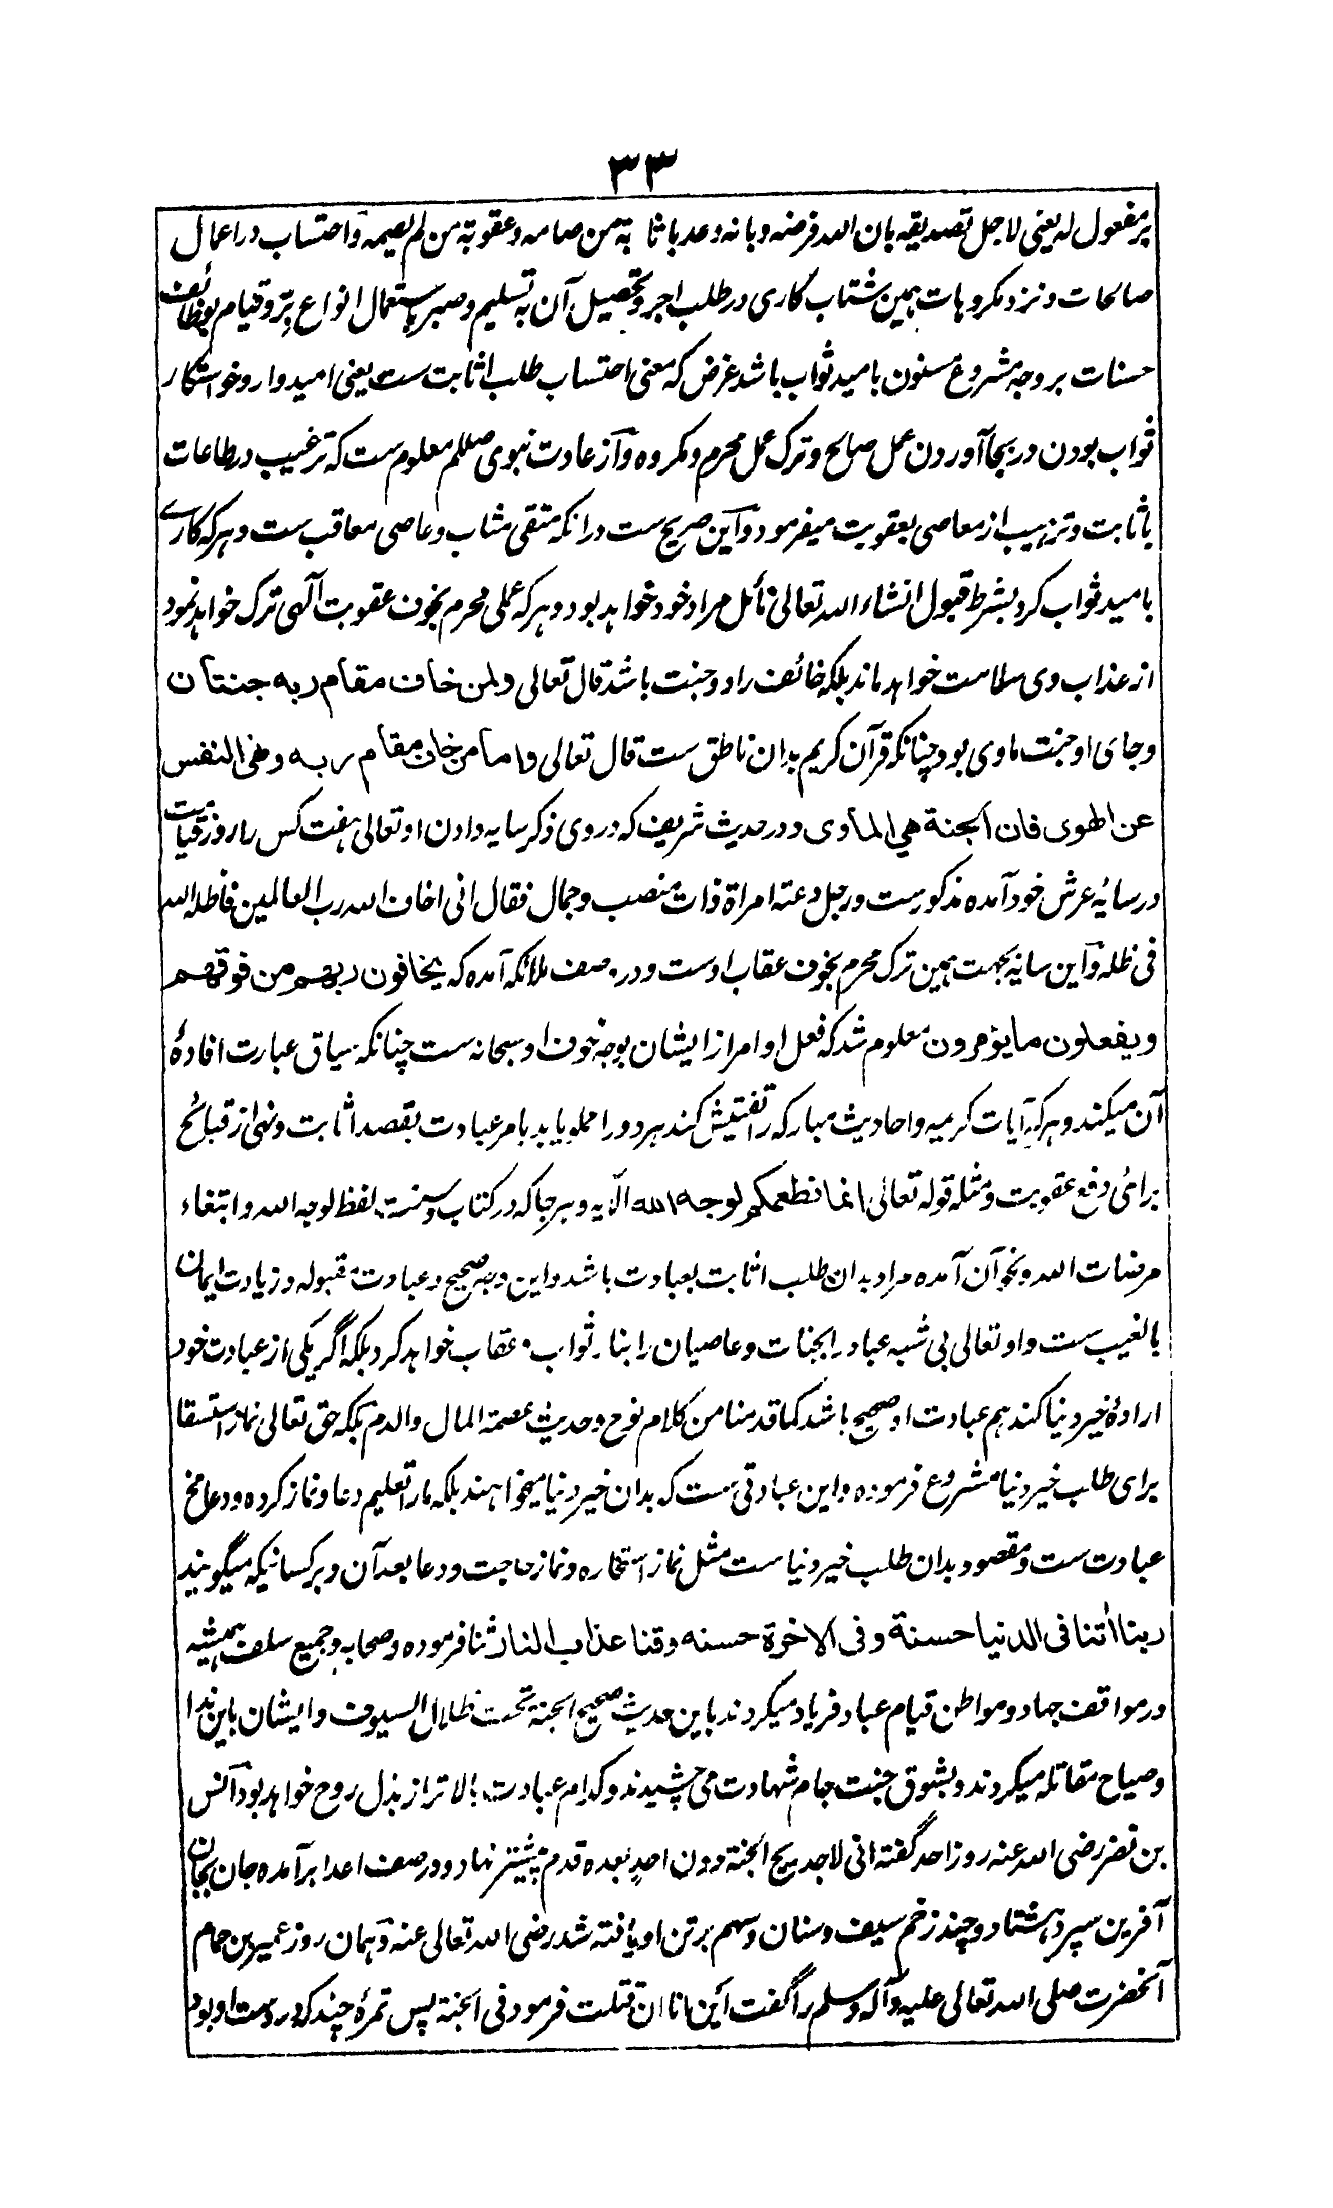 ٣٣
بر مفعول له یعنی لاجل تصدیقه بان الله فرضه وبانه وعد باثابة من صامه وعقوبة من لم یصمه واحتساب در اعمال
صالحات ونزد مکروهات همین شتاب کاری در طلب اجر وتحصیل آن به تسلیم وصبر باستعمال انواع برّ وقیام بوظائف
حسنات بر وجه مشروع مسنون بامید ثواب باشد غرض که معنی احتساب طلب اثابت ست یعنی امیدوار وخواستکار
ثواب بودن در بجا آوردن عمل صالح وترک عمل محرم ومکروه وآز عادت نبوی صللم معلوم ست که ترغیب در طاعات
باثابت وترهیب از معاصی بعقوبت میفرمود وآین صریح ست درانکه متقی مثاب وعاصی معاقب ست وهرکه کارے
بامید ثواب کرد بشرط قبول انشاء الله تعالی نائل مراد خود خواهد بود وهرکه عملی محرم بخوف عقوبت آلهی ترک خواهد نمود
از عذاب وی سلامت خواهد ماند بلکه خائف را دو جنت باشد قال تعالی ولمن خاف مقام ربه جنتان
وجای او جنت ماوی بود چنانکه قرآن کریم بدان ناطق ست قال تعالی واما من خاف مقام ربه ونهی النفس
عن الهوی فان الجنة هي المأوی ودر حدیث شریف که در وی ذکر سایه دادن او تعالی هفت کس را روز قیامت
در سایهٔ عرش خود آمده مذکورست ورجل دعته امراة ذات منصب وجمال فقال انی اخاف الله رب العالمین فاظله الله
فی ظله وآین سایه بجهت همین ترک محرم بخوف عقاب اوست ودر وصف ملائکه آمده که یخافون ربهم من فوقهم
ویفعلون ما یؤمرون معلوم شد که فعل اوامر از ایشان بوجه خوف او سبحانه ست چنانکه سیاق عبارت افادهٔ
آن میکند وهرکه آیات کریمه واحادیث مبارکه را تفتیش کند هر دو را مملو یابد بامر عبادت بقصد اثابت ونهی از قبائح
برائی دفع عقوبت ومثله قوله تعالی انما نطعمکم لوجه الله الآیه وهرجا که در کتاب وسنت لفظ لوجه الله وابتغاء
مرضات الله ونحو آن آمده مراد بدان طلب اثابت بعبادت باشد واین وجه صحیح وعبادت مقبوله وزیادت ایمان
بالغیب ست واو تعالی بی شبه عباد را بجنات وعاصیان را بنار ثواب وعقاب خواهد کرد بلکه اگر یکی از عبادت خود
ارادهٔ خیر دنیا کند هم عبادت او صحیح باشد کما قدمنا من کلام نوح وحدیث عصمة المال والدم بلکه حق تعالی نماز استسقا
برای طلب خیر دنیا مشروع فرموده واین عبادتی ست که بدان خیر دنیا میخواهند بلکه ما را تعلیم دعا ونماز کرده ودعا مخ
عبادت ست ومقصود بدان طلب خیر دنیا ست مثل نماز استخاره ونماز حاجت ودعا بعد آن وبر کسانیکه میگویند
ربنا اٰتنا فی الدنیا حسنة وفی الاخرة حسنه وقنا عذاب النار ثنا فرموده وصحابه وجمیع سلف همیشه
در مواقف جهاد ومواطن قیام عباد فریاد میکردند باین حدیث صحیح الجنة تحت ظلال السیوف وایشان باین ندا
وصیاح مقاتله میکردند وبشوق جنت جام شهادت می چشیدند وکدام عبادت بالاتر از بذل روح خواهد بود آنس
بن نضر رضی الله عنه روز احد گفته انی لاجد ریح الجنة دون احد بعده قدم پیشتر نهاد ودر صف اعدا برآمده جان بجان
آفرین سپرد هشتاد وچند زخم سیف وسنان وسهم بر تن او یافته شد رضی الله تعالی عنه وهمان روز عمیر بن حمام
آنحضرت صلی الله تعالی علیه وآله وسلم را گفت أین انا ان قتلت فرمود فی الجنة پس تمرهٔ چند که در دست او بود